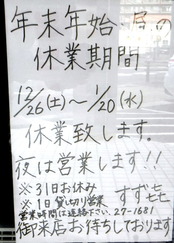 年末年始 昼の
休業期間
12/26(土)～1/20(水)
休業致します。
夜は営業します!!
※31日お休み
※1日貸し切り営業 すず㐂
営業時間は連絡下さい。27-1681
御来店お待ちしております